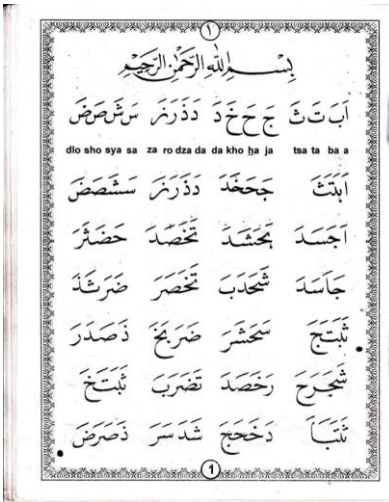 ١
بِسْمِ اللهِ الرَّحْمٰنِ الرَّحِيْمِ
اَ بَ تَ ثَ جَ حَ خَ دَ دَ ذَ رَ زَ سَ شَ صَ ضَ
dlo sho sya sa za ro dza da da kho ha ja tsa ta ba a
اَبَتَثَ جَحَخَدَ دَذَرَزَ سَشَصَضَ
اَجَسَدَ بَحَشَدَ تَخَصَدَ حَضَثَرَ
جَاسَدَ شَحَدَبَ تَخَصَرَ ضَرَثَدَ
ثَبَتَجَ سَحَشَرَ ضَرَبَخَ ذَصَدَرَ
شَجَرَحَ رَخَصَدَ تَضَرَبَ ثَبَتَخَ
ثَتَبَاَ دَخَحَجَ شَدَسَرَ ذَصَرَضَ
1